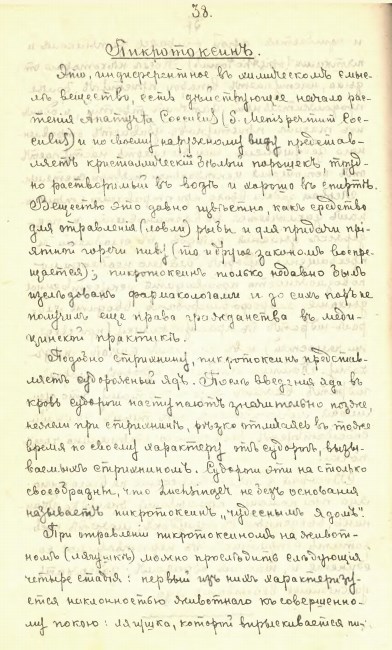 38.
Пикротоксинъ.
Это, индиферентное въ химическомъ смыс-
лѣ вещество, есть дѣйствующее начало рас-
тенія Anamyrta Cocculus (S. Menispermum Coc-
culus) и по своему наружному виду представ-
ляетъ кристаллическій бѣлый порошекъ, труд-
но растворимый въ водѣ и хорошо въ спиртѣ.
Вещество это давно извѣстно, какъ средство
для отравленія (ловли) рыбы и для придачи прі-
ятной горечи пиву (то и другое закономъ воспре-
щается); пикротоксинъ только недавно былъ
изслѣдованъ фармакологами и до сихъ поръ не
получилъ еще права гражданства въ меди-
цинской практикѣ.
Подобно стрихнину, пикротоксинъ представ-
ляетъ судорожный ядъ. Послѣ введенія яда въ
кровь судороги наступаютъ значительно позже,
нежели при стрихнинѣ, рѣзко отличаясь въ тоже
время по своему характеру отъ судорогъ, вызы-
ваемыхъ стрихниномъ. Судороги эти на столько
своеобразны, что Luchsinger не безъ основанія
называетъ пикротоксинъ „чудеснымъ ядомъ“.
При отравленіи пикротоксиномъ на живот-
номъ (лягушкѣ) можно прослѣдить слѣдующія
четыре стадіи: первый изъ нихъ характеризу-
ется наклонностью животнаго къ совершенно-
му покою: лягушка, которой впрыскивается пи-